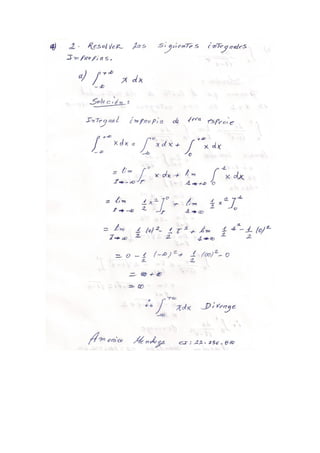 2. Resolver las siguientes integrales
Impropias.
a) ∫_{-∞}^{+∞} x dx
Solución:
Integral impropia de 1era especie
∫_{-∞}^{+∞} x dx = ∫_{-∞}^{0} x dx + ∫_{0}^{+∞} x dx
= lim_{I→-∞} ∫_{I}^{0} x dx + lim_{s→+∞} ∫_{0}^{s} x dx
= lim_{I→-∞} 1/2 x² ]_{I}^{0} + lim_{s→∞} 1/2 x² ]_{0}^{s}
= lim_{I→-∞} 1/2 (0)² - 1/2 I² + lim_{s→∞} 1/2 s² - 1/2 (0)²
= 0 - 1/2 (-∞)² + 1/2 (∞)² - 0
= ∞ + ∞
= ∞
∴ ∫_{-∞}^{+∞} x dx Diverge
Americo Mendoza